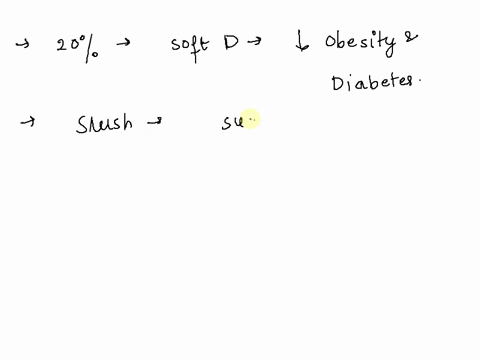 → 20% → Soft D → ↓ Obesity &
Diabetes.
→ Slush → su